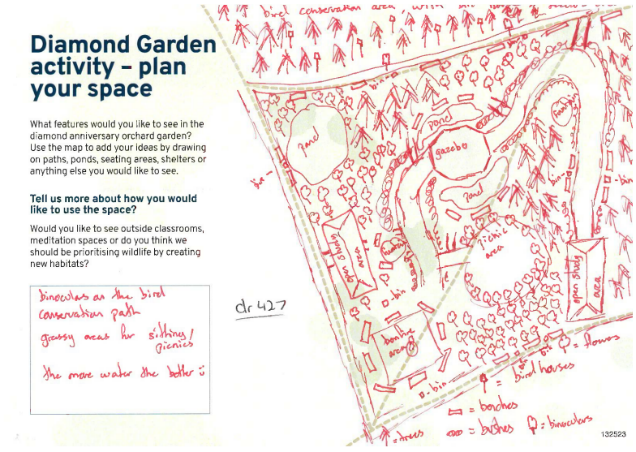 bird conservation area, with
Diamond Garden
activity – plan
your space
What features would you like to see in the
diamond anniversary orchard garden?
Use the map to add your ideas by drawing
on paths, ponds, seating areas, shelters or
anything else you would like to see.
Tell us more about how you would
like to use the space?
Would you like to see outside classrooms,
meditation spaces or do you think we
should be prioritising wildlife by creating
new habitats?
binoculars on the bird
conservation path
grassy areas for sitting/
picnics
the more water the better
dr427
pond
pond
gazebo
pond
picnic
area
open study
area
open study
area
bonfire
area
bin
bin
bin
= flowers
= bird houses
= benches
= trees
= bushes
= binoculars
132523